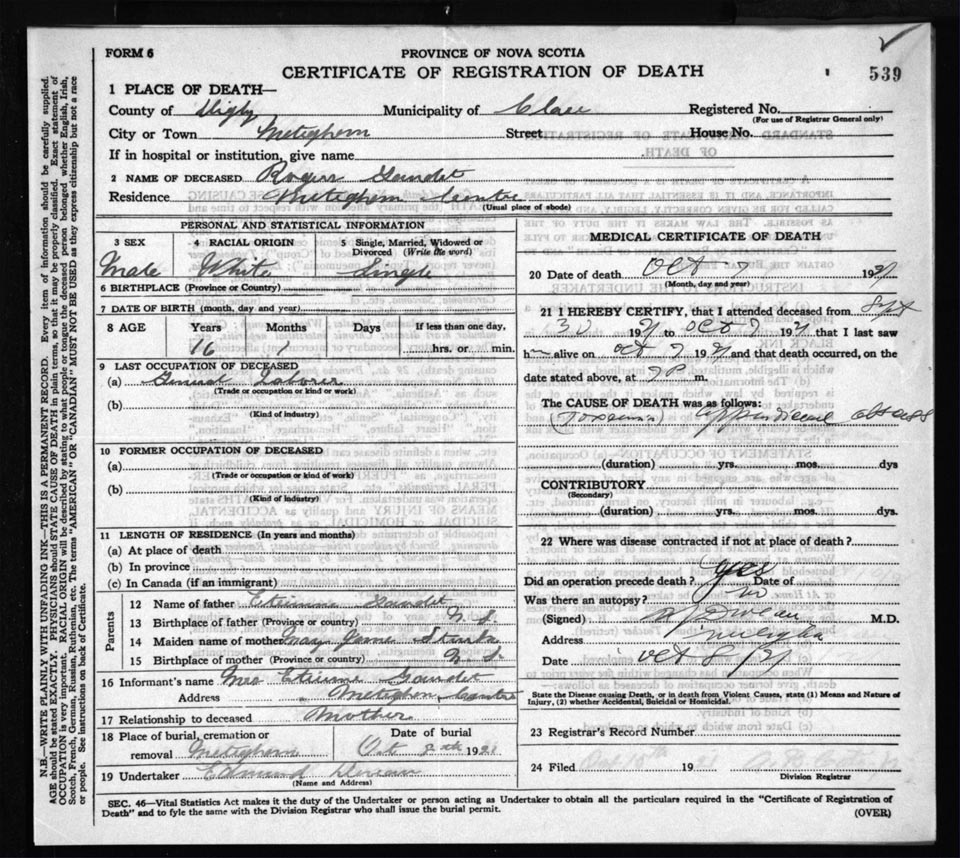 FORM 6
PROVINCE OF NOVA SCOTIA
CERTIFICATE OF REGISTRATION OF DEATH
539
1 PLACE OF DEATH—
County of Digby Municipality of Clare Registered No.
(For use of Registrar General only)
City or Town Meteghem Street House No.
If in hospital or institution, give name
2 NAME OF DECEASED Roger Gaudet
Residence Meteghem Centre
(Usual place of abode)
PERSONAL AND STATISTICAL INFORMATION
3 SEX 4 RACIAL ORIGIN 5 Single, Married, Widowed or Divorced (Write the word)
Male White Single
6 BIRTHPLACE (Province or Country)
7 DATE OF BIRTH (month, day and year)
8 AGE Years Months Days If less than one day,
16 1 hrs. or min.
9 LAST OCCUPATION OF DECEASED
(a) General Laborer
(Trade or occupation or kind or work)
(b)
(Kind of industry)
10 FORMER OCCUPATION OF DECEASED
(a)
(Trade or occupation or kind of work)
(b)
(Kind of industry)
11 LENGTH OF RESIDENCE (In years and months)
(a) At place of death
(b) In province
(c) In Canada (if an immigrant)
Parents
12 Name of father Etienne Gaudet
13 Birthplace of father (Province or country) N. S.
14 Maiden name of mother May Jane
15 Birthplace of mother (Province or country) N. S.
16 Informant's name Mrs Etienne Gaudet
Address Meteghem Centre
17 Relationship to deceased Mother
18 Place of burial, cremation or Date of burial
removal Meteghem Oct 192
19 Undertaker Edmund
(Name and Address)
MEDICAL CERTIFICATE OF DEATH
20 Date of death Oct 7 1921
(Month, day and year)
21 I HEREBY CERTIFY, that I attended deceased from Sept
30 1921 to Oct 7 1921 that I last saw
h alive on Oct 7 1921 and that death occurred, on the
date stated above, at 7 P m.
The CAUSE OF DEATH was as follows:
abscess
(duration) yrs. mos. dys
CONTRIBUTORY
(Secondary)
(duration) yrs. mos. dys
22 Where was disease contracted if not at place of death?
Did an operation precede death? yes Date of
Was there an autopsy? no
(Signed) M.D.
Address
Date Oct 8 21
State the Disease causing Death, or in death from Violent Causes, state (1) Means and Nature of
Injury, (2) whether Accidental, Suicidal or Homicidal.
23 Registrar's Record Number
24 Filed Oct 192
Division Registrar
SEC. 46—Vital Statistics Act makes it the duty of the Undertaker or person acting as Undertaker to obtain all the particulars required in the "Certificate of Registration of
Death" and to fyle the same with the Division Registrar who shall issue the burial permit.
(OVER)
N.B.—WRITE PLAINLY WITH UNFADING INK—THIS IS A PERMANENT RECORD. Every item of information should be carefully supplied.
AGE should be stated EXACTLY. PHYSICIANS should STATE CAUSE OF DEATH in plain terms, so that it may be properly classified. Exact statement of
OCCUPATION is very important. RACIAL ORIGIN will be described by stating to what people or tongue the deceased person belonged whether English, Irish,
Scotch, French, German, Russian, Ruthenian, etc. The terms "AMERICAN" or "CANADIAN" MUST NOT BE USED as they express citizenship but not a race
or people. See instructions on back of Certificate.